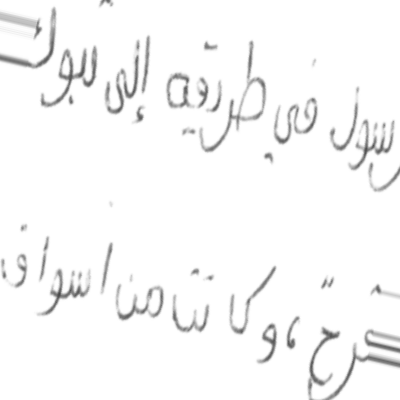 رسول في طريقه إلى تبوك
، وكانت من أسواق